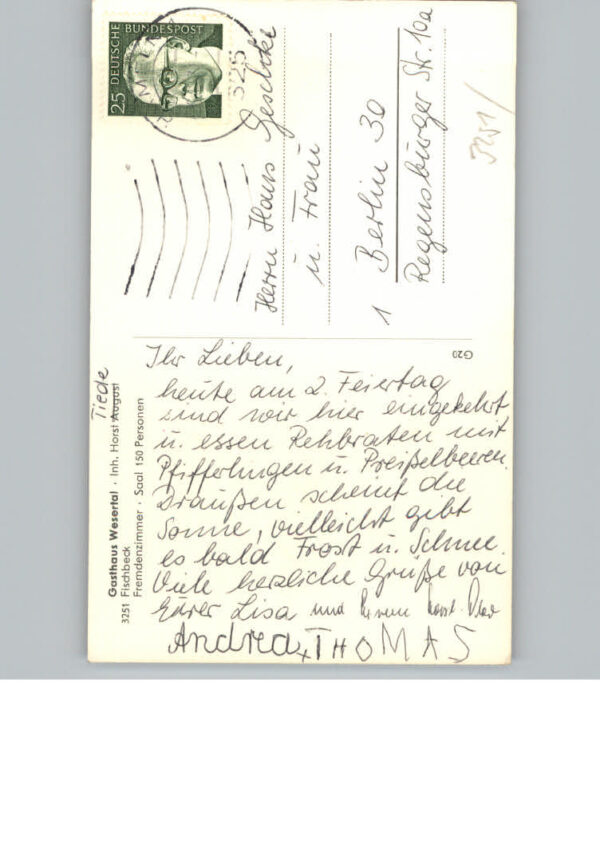 25 DEUTSCHE BUNDESPOST
325
Herrn Hans Geschke
u. Frau
1 Berlin 30
Regensburger Str. 10a
3251/
G20
Tiede
Gasthaus Wesertal · Inh. Horst August
3251 Fischbeck
Fremdenzimmer · Saal 150 Personen
Ihr Lieben,
heute am 2. Feiertag
sind wir hier eingekehrt
u. essen Rehbraten mit
Pfifferlingen u. Preißelbeeren.
Draußen scheint die
Sonne, vielleicht gibt
es bald Frost u. Schnee.
Viele herzliche Grüße von
Eurer Lisa und
Andrea + THOMAS